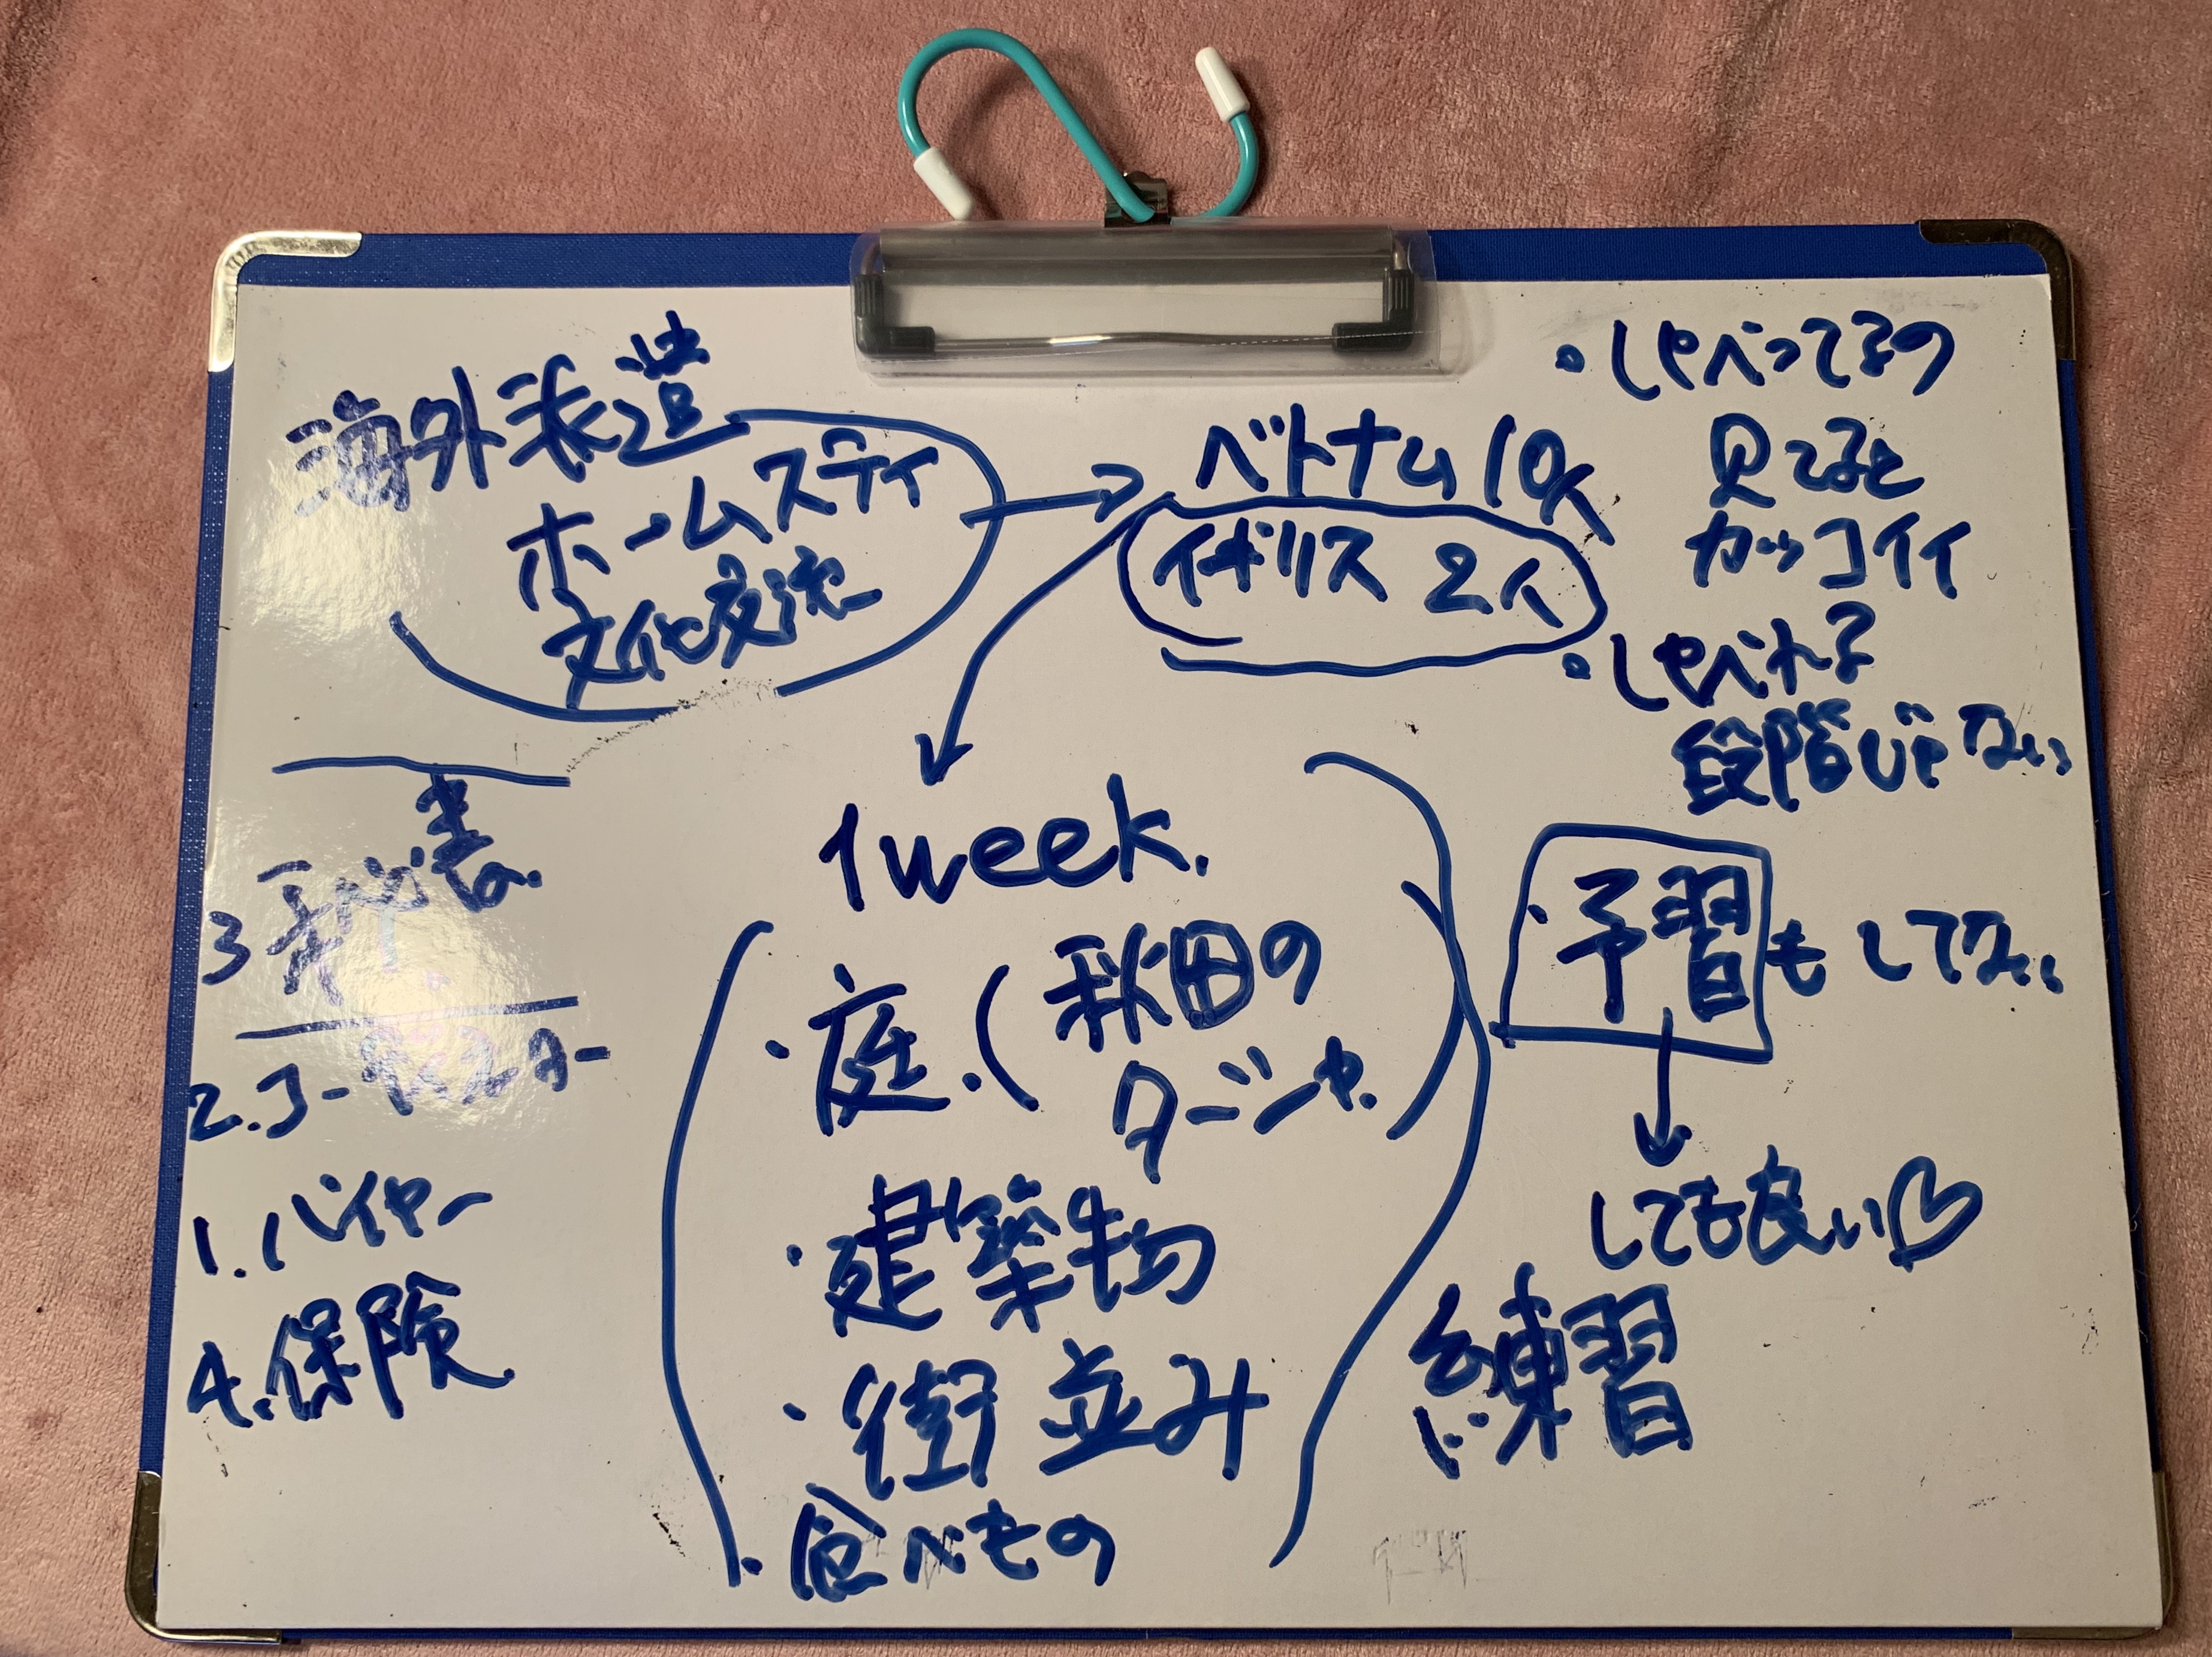 海外派遣
ホームスティ
文化交流
ベトナム 10人
イギリス 2人
・しゃべってるの
見てると
カッコイイ
・しゃべれる
段階じゃない
・予習もしてない
しても良い♡
練習
1week.
・庭.(秋田の
ターシャ.)
・建築物
・街並み
・食べもの
3
2.コーディネーター
1.バイヤー
4.保険